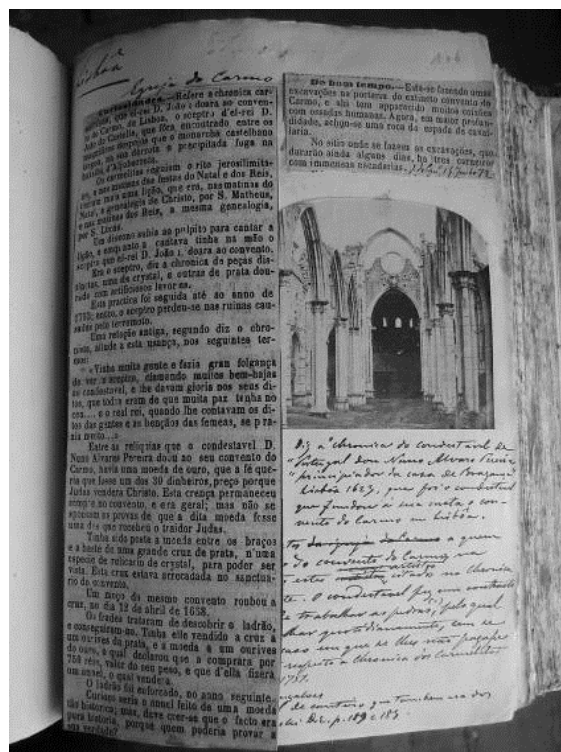 Lisboa
Igreja do Carmo
Curiosidades.—Refere a chronica car-
que el-rei D. João I doara ao conven-
to do Carmo, de Lisboa, o sceptro d'el-rei D.
João de Castella, que fôra encontrado entre os
despojos depois que o monarcha castelhano
na sua derrota e precipitada fuga na
batalha d'Aljubarrota.
Os carmelitas seguiam o rito jerosilimita-
e nas matinas das festas do Natal e dos Reis,
mais uma lição, que era, nas matinas do
Natal, a genealogia de Christo, por S. Matheus,
e nas matinas dos Reis, a mesma genealogia,
por S. Lucas.
Um diacono subia ao pulpito para cantar a
lição, e emquanto a cantava tinha na mão o
sceptro que el-rei D. João I, doara ao convento.
Era o sceptro, diz a chronica de peças dis-
tinctas, uma de crystal, e outras de prata dou-
rada com artificiosos lavores.
Esta practica foi seguida até ao anno de
1755; então, o sceptro perdeu-se nas ruinas cau-
sadas pelo terremoto.
Uma relação antiga, segundo diz o chro-
nista, allude a esta usança, nos seguintes ter-
mos:
«Vinha muita gente e fazia gran folgança
de ver o sceptro, clamando muitos bem-hajas
ao condestavel, e lhe davam gloria nos seus di-
tos, que todos eram de que muita paz tenha no
ceo.... e o real rei, quando lhe contavam os di-
tos das gentes e as bençãos das femeas, se pra-
zia muito...»
Entre as reliquias que o condestavel D.
Nuno Alvares Pereira doou ao seu convento do
Carmo, havia uma moeda de ouro, que a fé que-
ria que fosse um dos 30 dinheiros, preço porque
Judas vendera Christo. Esta crença permaneceu
sempre no convento, e era geral; mas não se
apontam as provas de que a dita moeda fosse
uma das que recebeu o traidor Judas.
Tinha sido posta a moeda entre os braços
e a haste de uma grande cruz de prata, n'uma
especie de relicario de crystal, para poder ser
vista. Esta cruz estava arrecadada no sanctua-
rio do convento.
Um moço do mesmo convento roubou a
cruz, no dia 12 de abril de 1638.
Os frades trataram de descobrir o ladrão,
e conseguiram-no. Tinha elle vendido a cruz a
um ourives da prata, e a moeda a um ourives
do ouro, o qual declarou que a comprara por
750 réis, valor do seu peso, e que d'ella fizera
um annel, o qual vendera.
O ladrão foi enforcado, no anno seguinte.
Curioso seria o annel feito de uma moeda
tão historica; mas, deve crer-se que o facto era
para historia, porque quem poderia provar a
sua verdade?
Do bom tempo.—Está-se fazendo umas
excavações na portaria do extincto convento do
Carmo, e ahi tem apparecido muitos caixões
com ossadas humanas. Agora, em maior profun-
didade, achou-se uma roca de espada de caval-
laria.
No sitio onde se fazem as excavações, que
durarão ainda alguns dias, ha tres carneiros
com immensas ossadas.
Diz a "chronica do condestavel de
"Portugal dom Nuno Alvarez Pereira
"principiador da casa de Bragança
Lisboa 1623, que foi o condestavel
que fundou á sua custa o con-
vento do Carmo em Lisboa.
da igreja do Carmo a quem
do convento do Carmo
estes artistas citados na chronica
O condestavel fez um contracto
trabalhar as pedras, pelo qual
quotidianamente, com
caso em que se lhes não pagasse
respeito a chronica dos carmelitas
que tambem era dos
p. 182 e 183